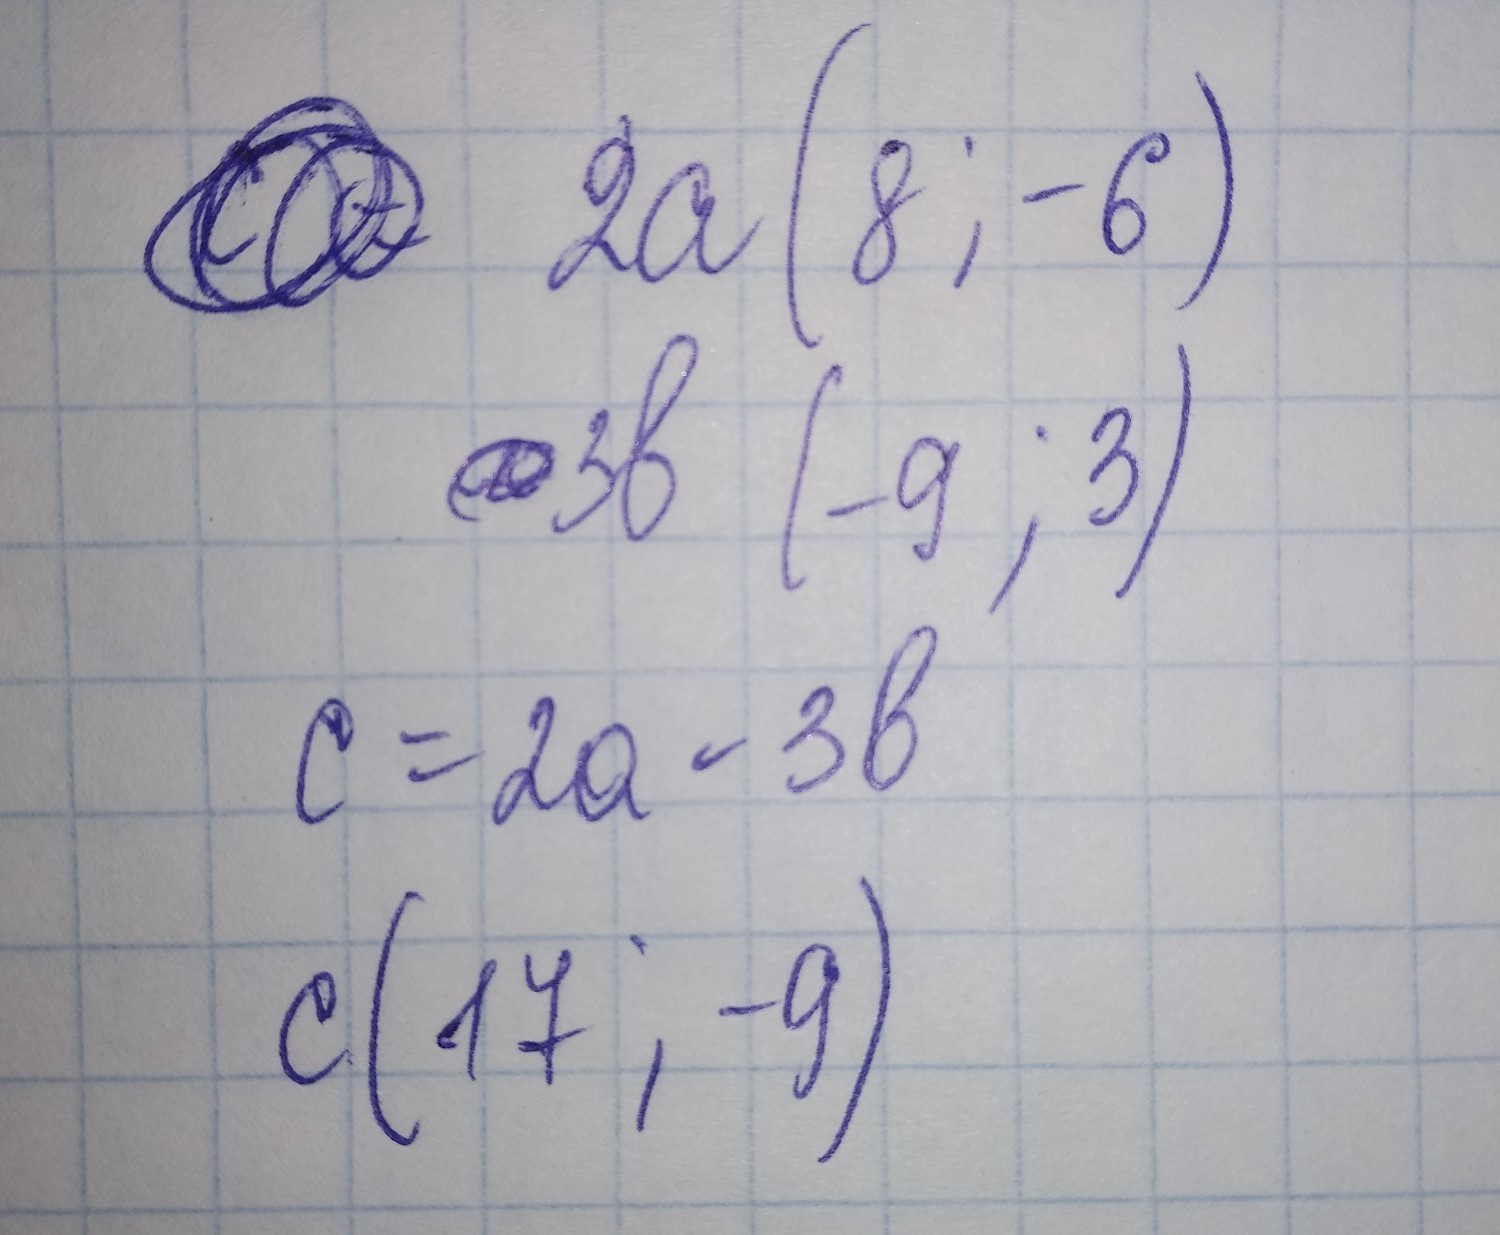 2a(8; -6)
3b (-9; 3)
c = 2a - 3b
c(17; -9)